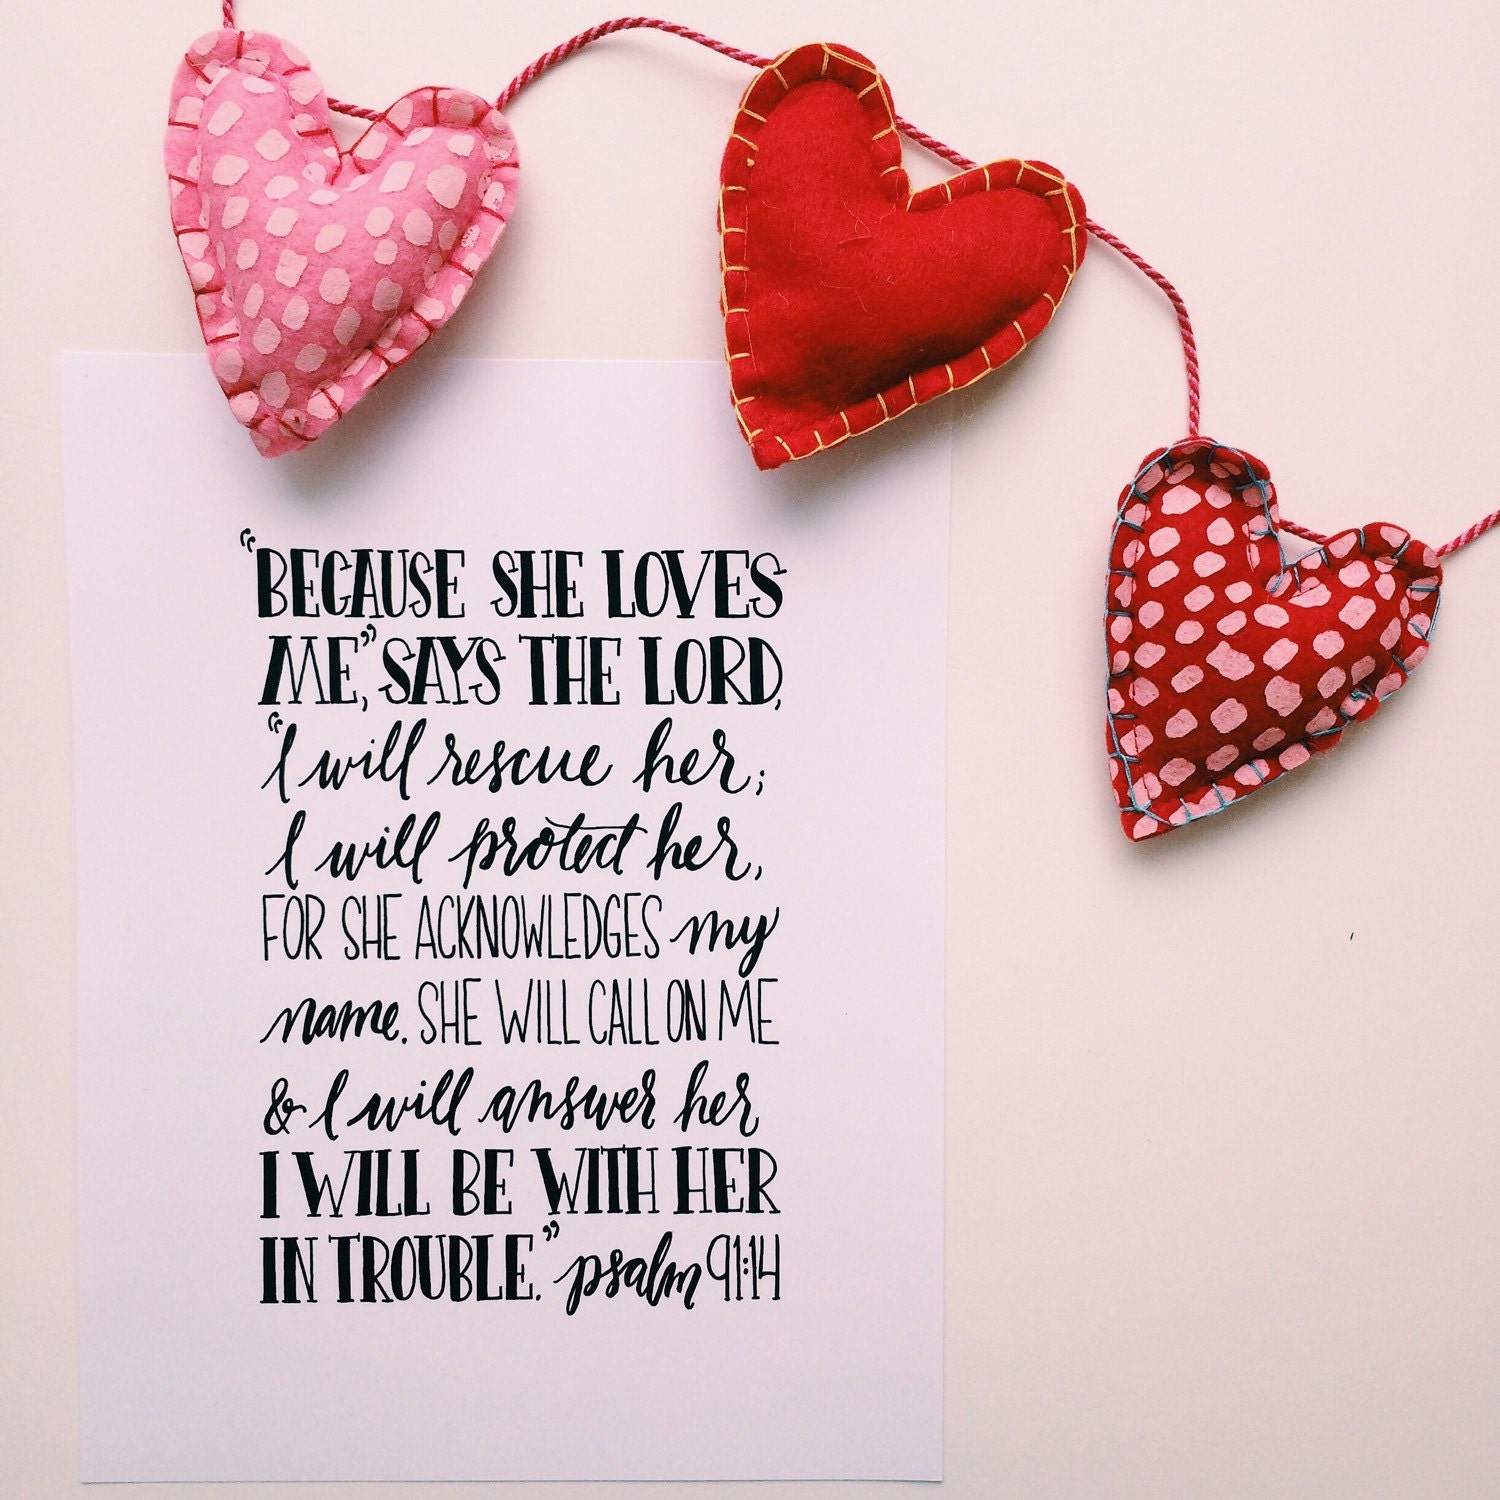 “BECAUSE SHE LOVES
ME,” SAYS THE LORD,
“I will rescue her;
I will protect her,
FOR SHE ACKNOWLEDGES my
name. SHE WILL CALL ON ME
& I will answer her
I WILL BE WITH HER
IN TROUBLE.” psalm 91:14